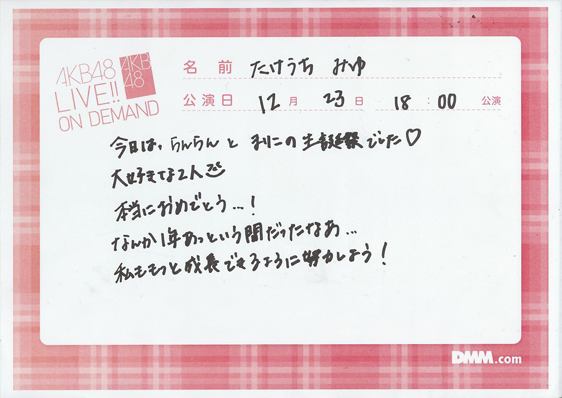 AKB48
LIVE!!
ON DEMAND
AKB
48
名 前 たけうち みゆ
公演日 12月 23日 18:00 公演
今日は、らんらんと まりこの生誕祭でした♡
大好きな2人
本当におめでとう…!
なんか1年あっという間だったなあ…
私ももっと成長できるように努力しよう!
DMM.com